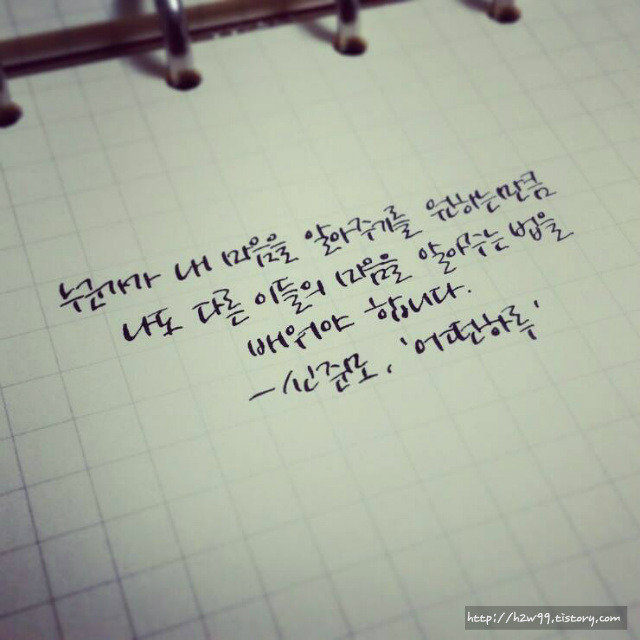 누군가가 내 마음을 알아주기를 원하는만큼
나도 다른 이들의 마음을 알아주는 법을
배워야 합니다.
- 신준모, '어떤하루'
http://h2w99.tistory.com